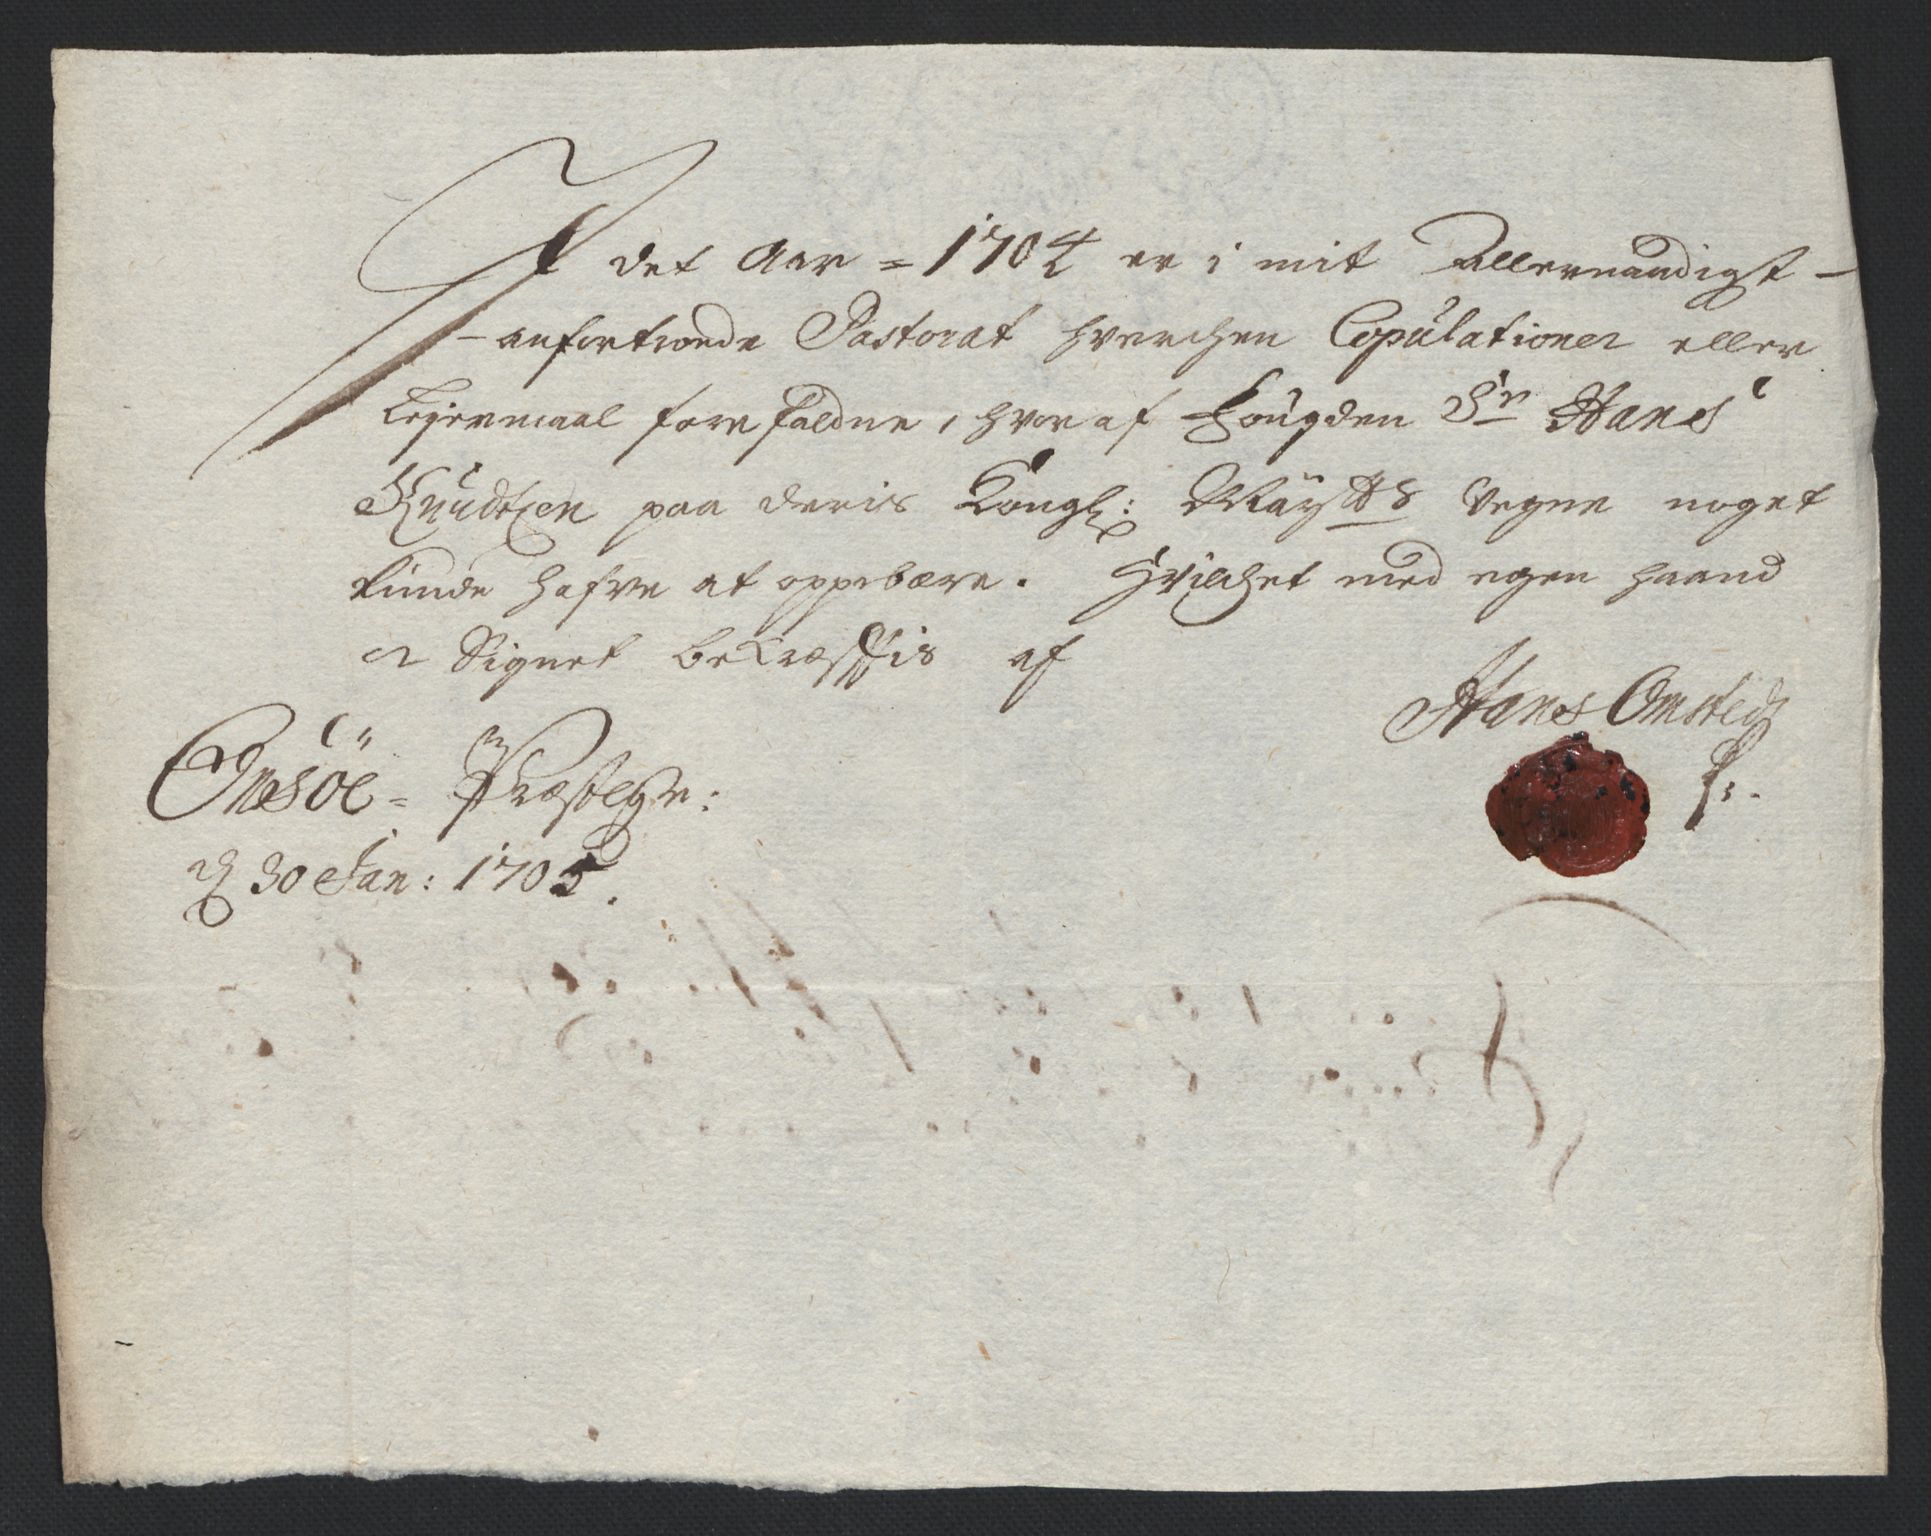 I det Aar = 1704 er i mit Allernaadigst -
- anfortroede Pastorat hverchen Copulationer eller
Leyermaal forefaldne, hvor af Fougden Sr Hans
Knudtzen paa deris Kongl: Mayttz vegne noget
kunde hafve at oppebære. Hvilchet med egen haand
oc Signet bekræfftis af
Hans Omsted
Omsöe = Præstegr:
d 30 Jan: 1705.